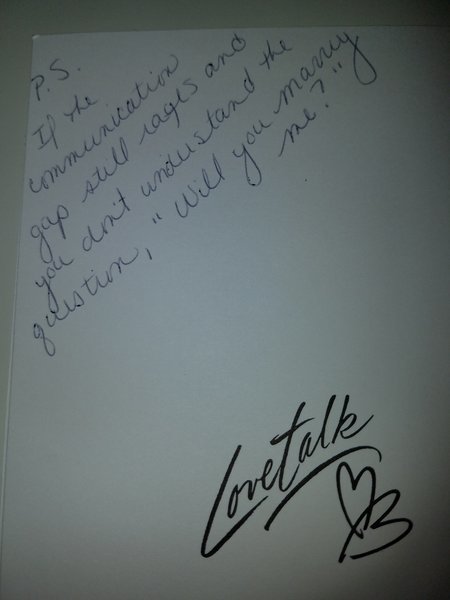 P.S.
If the
communication
gap still rages and
you don't understand the
question, "Will you marry
me?"
Lovetalk